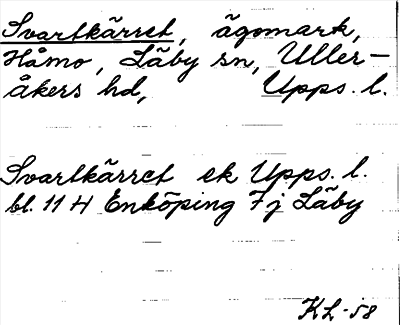 Svartkärret, ägomark,
Håmo, Läby sn, Uller-
åkers hd, Upps. l.
Svartkärret ek Upps. l.
bl. 11 H Enköping 7 j Läby
KL-58